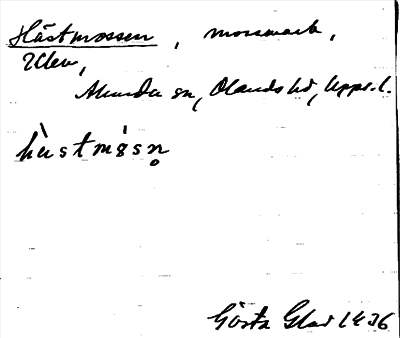 Hästmossen, mossmark,
Ulen,
Almunda sn, Olands hd, Uppl.
hästmåsn̥
Gösta Glad 1936